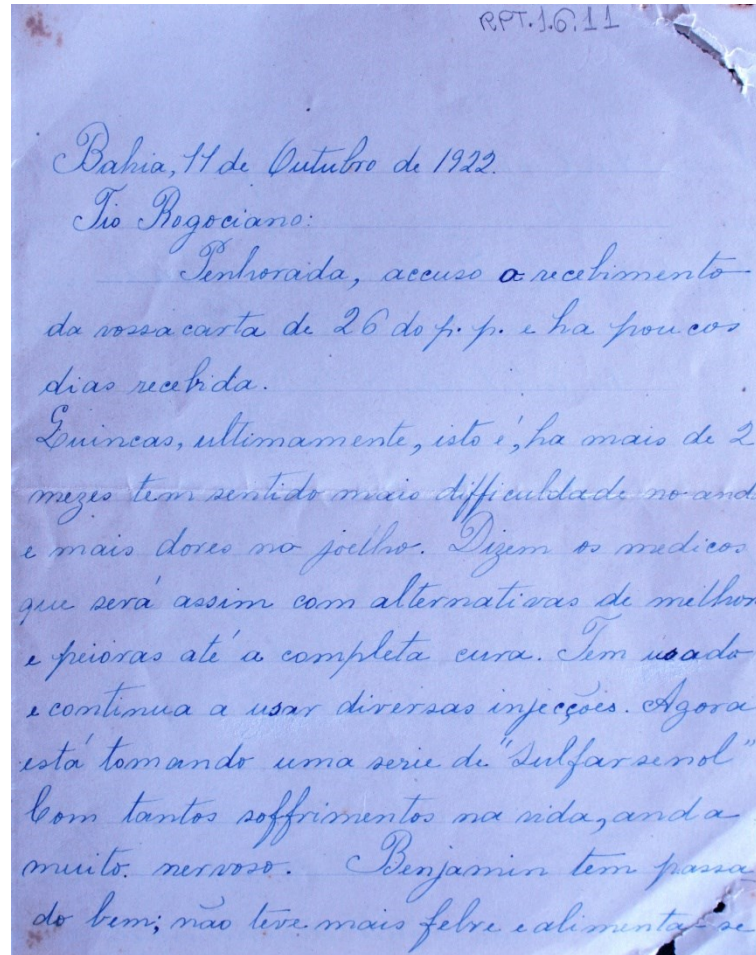 RPT.1.6.11
Bahia, 11 de Outubro de 1922.
Tio Rogociano:
Penhorada, accuso o recebimento
da vossa carta de 26 do p. p. e ha poucos
dias recebida.
Quincas, ultimamente, isto é, ha mais de 2
mezes tem sentido mais difficuldade no and
e mais dores no joelho. Dizem os medicos
que será assim com alternativas de melhor
e peioras até a completa cura. Tem usado
e continua a usar diversas injecções. Agora
está tomando uma serie de "Sulfarsenol"
Com tantos soffrimentos na vida, anda
muito nervoso. Benjamin tem passa
do bem; não teve mais febre e alimenta-se